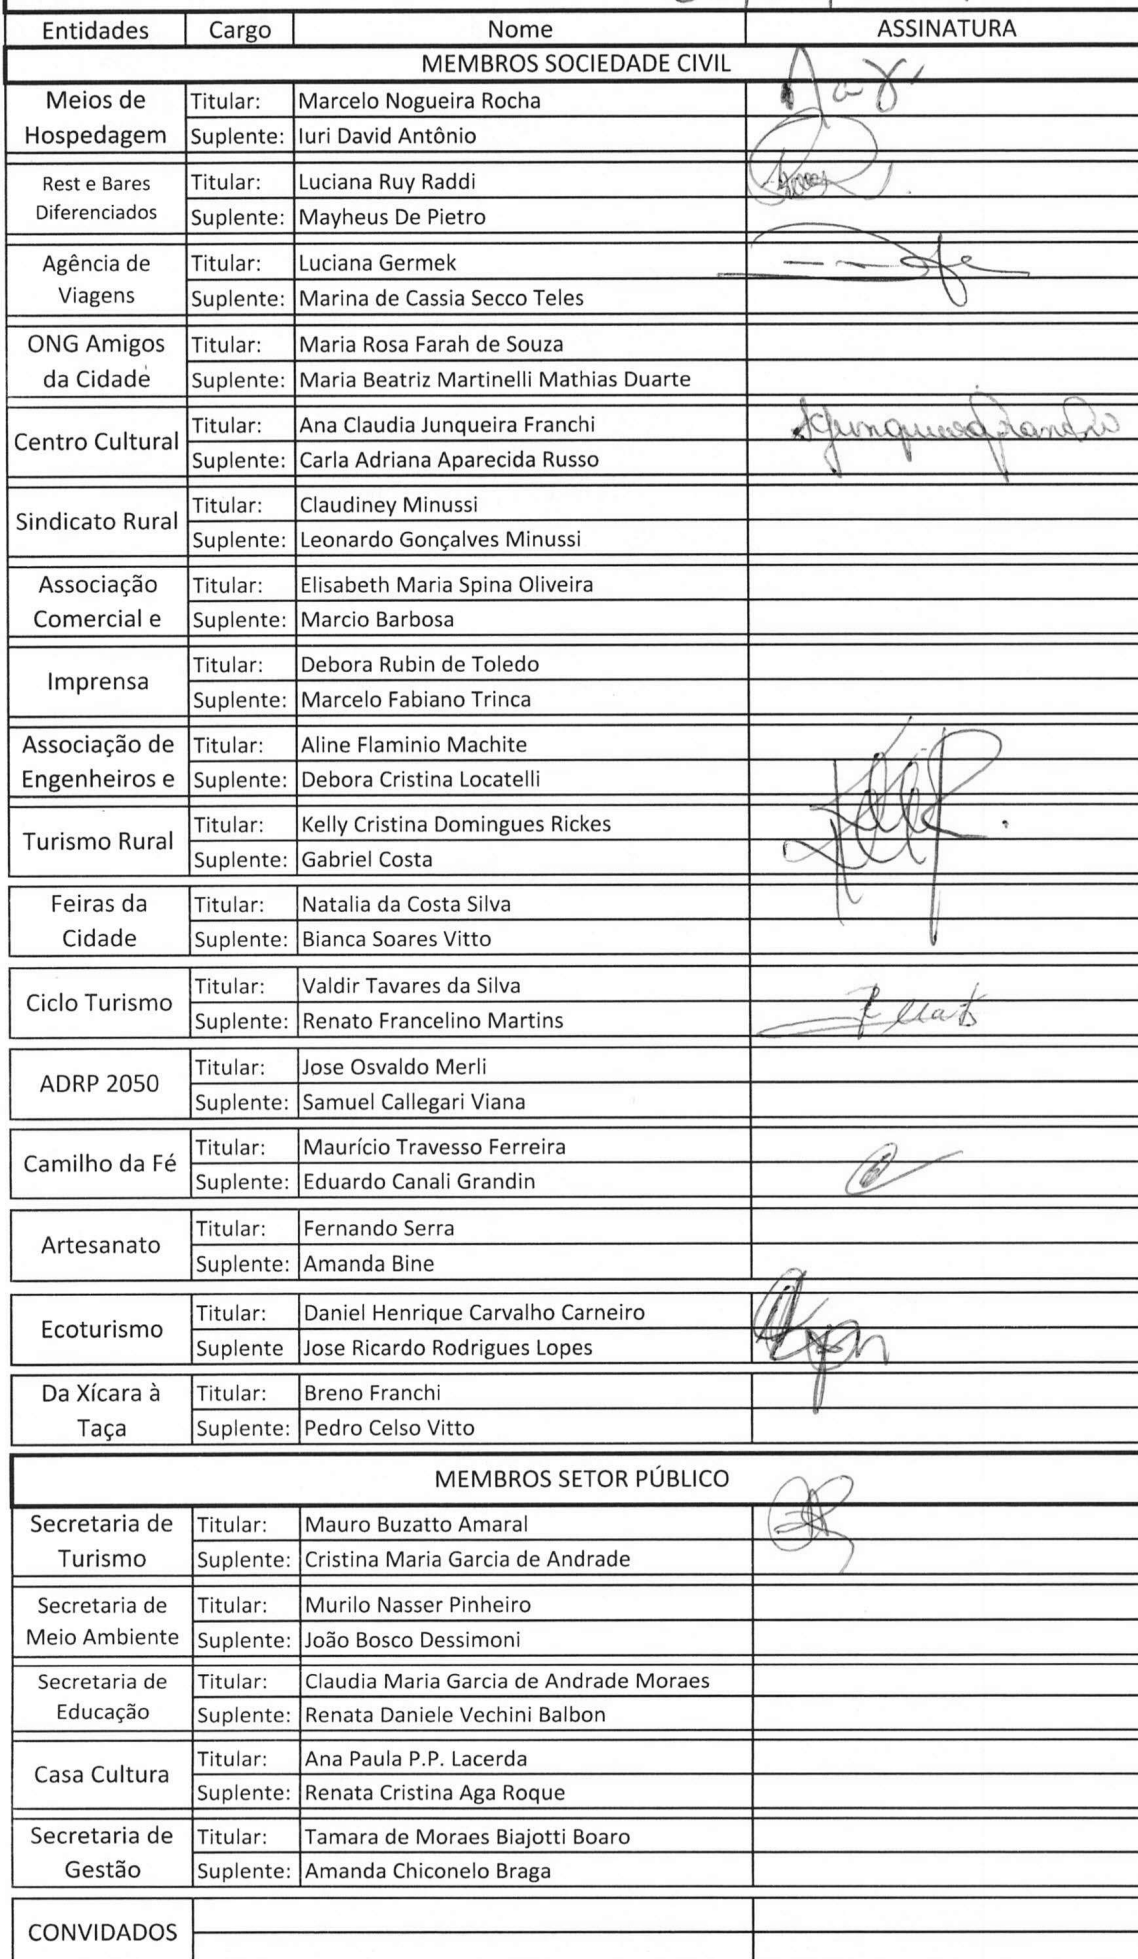 Entidades Cargo Nome ASSINATURA
MEMBROS SOCIEDADE CIVIL
Meios de Hospedagem
Titular: Marcelo Nogueira Rocha
Suplente: Iuri David Antônio
Rest e Bares Diferenciados
Titular: Luciana Ruy Raddi
Suplente: Mayheus De Pietro
Agência de Viagens
Titular: Luciana Germek
Suplente: Marina de Cassia Secco Teles
ONG Amigos da Cidade
Titular: Maria Rosa Farah de Souza
Suplente: Maria Beatriz Martinelli Mathias Duarte
Centro Cultural
Titular: Ana Claudia Junqueira Franchi
Suplente: Carla Adriana Aparecida Russo
Sindicato Rural
Titular: Claudiney Minussi
Suplente: Leonardo Gonçalves Minussi
Associação Comercial e
Titular: Elisabeth Maria Spina Oliveira
Suplente: Marcio Barbosa
Imprensa
Titular: Debora Rubin de Toledo
Suplente: Marcelo Fabiano Trinca
Associação de Engenheiros e
Titular: Aline Flaminio Machite
Suplente: Debora Cristina Locatelli
Turismo Rural
Titular: Kelly Cristina Domingues Rickes
Suplente: Gabriel Costa
Feiras da Cidade
Titular: Natalia da Costa Silva
Suplente: Bianca Soares Vitto
Ciclo Turismo
Titular: Valdir Tavares da Silva
Suplente: Renato Francelino Martins
ADRP 2050
Titular: Jose Osvaldo Merli
Suplente: Samuel Callegari Viana
Camilho da Fé
Titular: Maurício Travesso Ferreira
Suplente: Eduardo Canali Grandin
Artesanato
Titular: Fernando Serra
Suplente: Amanda Bine
Ecoturismo
Titular: Daniel Henrique Carvalho Carneiro
Suplente Jose Ricardo Rodrigues Lopes
Da Xícara à Taça
Titular: Breno Franchi
Suplente: Pedro Celso Vitto
MEMBROS SETOR PÚBLICO
Secretaria de Turismo
Titular: Mauro Buzatto Amaral
Suplente: Cristina Maria Garcia de Andrade
Secretaria de Meio Ambiente
Titular: Murilo Nasser Pinheiro
Suplente: João Bosco Dessimoni
Secretaria de Educação
Titular: Claudia Maria Garcia de Andrade Moraes
Suplente: Renata Daniele Vechini Balbon
Casa Cultura
Titular: Ana Paula P.P. Lacerda
Suplente: Renata Cristina Aga Roque
Secretaria de Gestão
Titular: Tamara de Moraes Biajotti Boaro
Suplente: Amanda Chiconelo Braga
CONVIDADOS